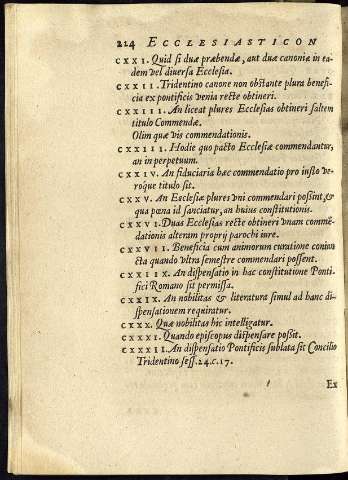 224 ECCLESIASTICON
CXXI. Quid si duæ præbendæ, aut duæ canoniæ in ea-
dem vel diversa Ecclesia.
CXXII. Tridentino canone non obstante plura benefi-
cia ex pontificis venia recte obtineri.
CXXIII. An liceat plures Ecclesias obtineri saltem
titulo Commendæ.
Olim quæ vis commendationis.
CXXIIII. Hodie quo pacto Ecclesiæ commendantur,
an in perpetuum.
CXXIV. An fiduciaris hæc commendatio pro iusto ve-
roque titulo sit.
CXXV. An Ecclesiæ plures vni commendari possint, &
qua pœna id sanciatur, an huius constitutionis.
CXXVI. Duas Ecclesias recte obtineri vnam commē-
dationis alteram proprij parochi iure.
CXXVII. Beneficia cum animorum curatione coniun
cta quando vltra semestre commendari possent.
CXXIIX. An dispensatio in hac constitutione Ponti-
fici Romano sit permissa.
CXXIX. An nobilitas & literatura simul ad hanc di-
spensationem requiratur.
CXXX. Quæ nobilitas hic intelligatur.
CXXXI. Quando episcopus dispensare possit.
CXXXII. An dispensatio Pontificis sublata sit Concilio
Tridentino sess. 24. c. 17.
Ex